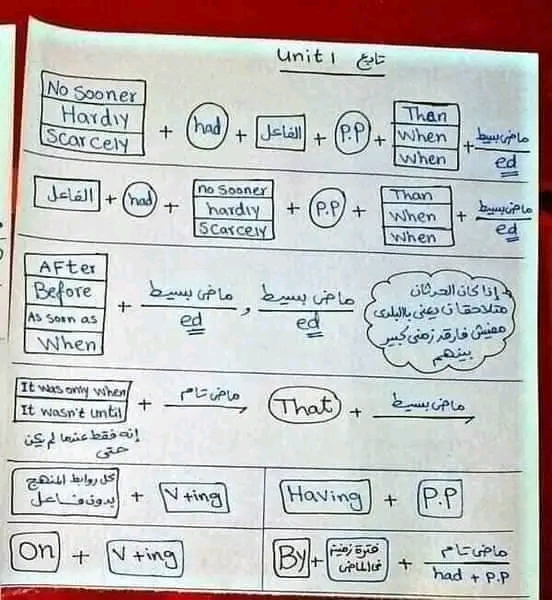 Unit 1 تابع
No sooner
Hardly
Scarcely
+ had + الفاعل + P.P +
Than
When
When
+ ماضى بسيط
ed
الفاعل + had +
no sooner
hardly
Scarcely
+ P.P +
Than
When
When
+ ماضى بسيط
ed
AFter
Before
As soon as
When
+ ماضى بسيط , ماضى بسيط
ed ed
إذا كان الحدثان
متلاحقان يعنى بالبلدى
مفيش فارق زمنى كبير
بينهم
It was only when
It wasn't until
+ ماضى تام That + ماضى بسيط
إنه فقط عندما لم يكن
حتى
كل روابط المنهج
بدون فاعل
+ V+ing
Having + P.P
On + V+ing
By + فترة زمنية
فى الماضى
+ ماضى تام
had + P.P